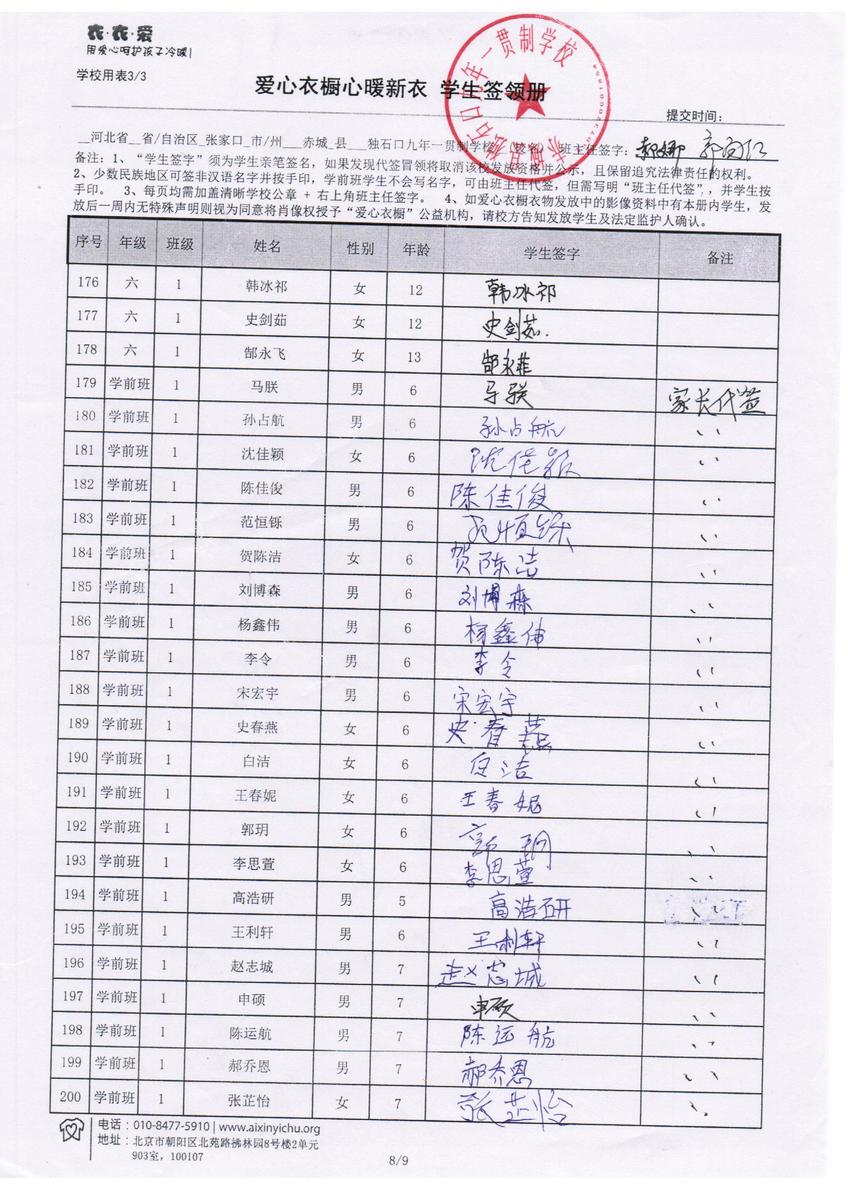 衣·衣·爱
用爱心呵护孩子冷暖!
学校用表3/3
爱心衣橱心暖新衣 学生签领册
提交时间:
__河北省__省/自治区_张家口_市/州___赤城_县___独石口九年一贯制学校 班主任签字: 郝娜
备注: 1、"学生签字"须为学生亲笔签名, 如果发现代签冒领将取消该校发放资格并公示, 且保留追究法律责任的权利。
2、少数民族地区可签非汉语名字并按手印, 学前班学生不会写名字, 可由班主任代签, 但需写明"班主任代签", 并学生按
手印。 3、每页均需加盖清晰学校公章 + 右上角班主任签字。 4、如爱心衣橱衣物发放中的影像资料中有本册内学生, 发
放后一周内无特殊声明则视为同意将肖像权授予"爱心衣橱"公益机构, 请校方告知发放学生及法定监护人确认。
序号 年级 班级 姓名 性别 年龄 学生签字 备注
176 六 1 韩冰祁 女 12 韩冰祁
177 六 1 史剑茹 女 12 史剑茹.
178 六 1 郜永飞 女 13 郜永菲
179 学前班 1 马朕 男 6 马朕 家长代签
180 学前班 1 孙占航 男 6 孙占航 、、
181 学前班 1 沈佳颖 女 6 沈佳颖 、、
182 学前班 1 陈佳俊 男 6 陈佳俊 、、
183 学前班 1 范恒铄 男 6 范恒铄 、、
184 学前班 1 贺陈洁 女 6 贺陈洁 、、
185 学前班 1 刘博森 男 6 刘博森 、、
186 学前班 1 杨鑫伟 男 6 杨鑫伟 、、
187 学前班 1 李令 男 6 李令 、、
188 学前班 1 宋宏宇 男 6 宋宏宇 、、
189 学前班 1 史春燕 女 6 史春燕 、、
190 学前班 1 白洁 女 6 白洁 、、
191 学前班 1 王春妮 女 6 王春妮 、、
192 学前班 1 郭玥 女 6 郭玥 、、
193 学前班 1 李思萱 女 6 李思萱 、、
194 学前班 1 高浩研 男 5 高浩研 、、
195 学前班 1 王利轩 男 6 王利轩 、、
196 学前班 1 赵志城 男 7 赵志城 、、
197 学前班 1 申硕 男 7 申硕 、、
198 学前班 1 陈运航 男 7 陈运航 、、
199 学前班 1 郝乔恩 男 7 郝乔恩 、、
200 学前班 1 张芷怡 女 7 张芷怡 、、
电话: 010-8477-5910 | www.aixinyichu.org
地址: 北京市朝阳区北苑路拂林园8号楼2单元
903室, 100107
8/9